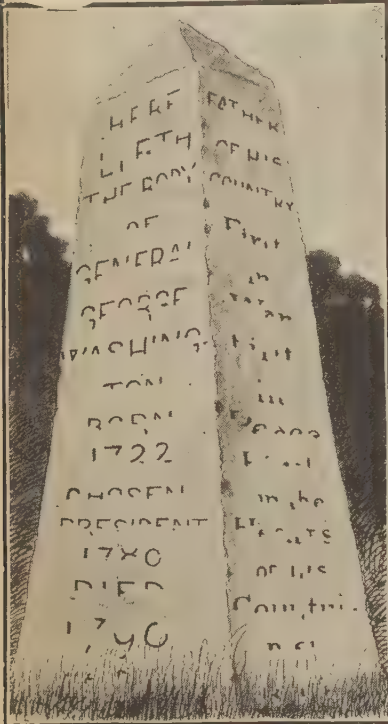 HERE
LIETH
THE BODY
OF
GENERAL
GEORGE
WASHING-
TON
BORN
CHOSEN
PRESIDENT
DIED
FATHER
OF HIS
COUNTRY
First
in
war
First
in
Peace
First
in the
Hearts
of his